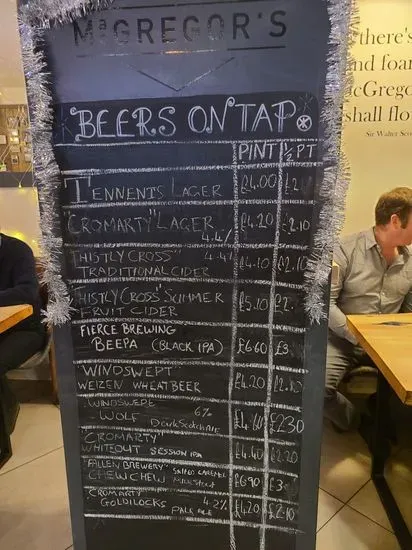 McGREGOR'S
there's
nd foa
McGrego
shall flo
Sir Walter Sco
BEERS ON TAP
PINT ½ PT
TENNENTS LAGER £4.00 £2
"CROMARTY" LAGER £4.20 £2.10
4.4%
THISTLY CROSS" 4.4% £4.10 £2.10
TRADITIONAL CIDER
THISTLY CROSS SUMMER £5.10 £2.
FRUIT CIDER
FIERCE BREWING
BEEPA (BLACK IPA) £6.60 £3
WINDSWEPT"
WEIZEN WHEAT BEER £4.20 £2.10
WINDSWEPT
WOLF 6% Dark Scotch Ale £4.60 £230
"CROMARTY"
WHITEOUT SESSION IPA £4.40 £2.20
"FALLEN BREWERY" SALTED CARAMEL
CHEW CHEW MILK Stout £6.90 £3
CROMARTY
GOLDILOCKS 4.2% PALE ALE £4.20 £2.10